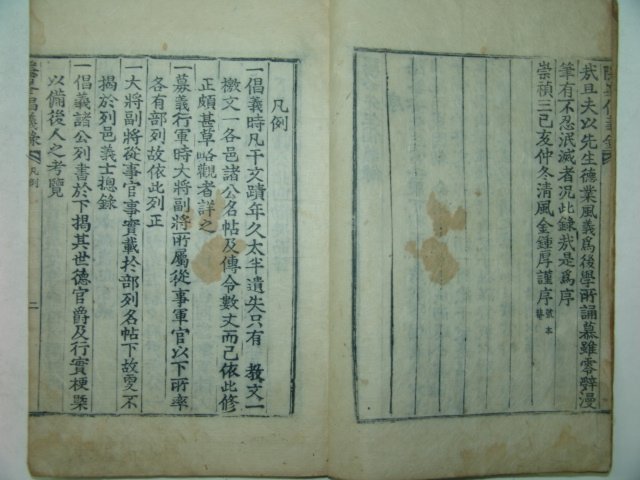 哉且夫以先生德業風義爲後學所誦慕雖零辭漫
筆有不忍泯滅者況此錄哉是爲序
崇禎三己亥仲冬淸風金鍾厚謹序
凡例
一倡義時凡干文蹟年久太半遺失只有 敎文一
檄文一各邑諸公名帖及傳令數丈而已依此修
正頗甚草略觀者詳之
一募義行軍時大將副將所屬從事軍官以下所率
各有部列故依此列正
一大將副將從事官事實載於部列名帖下故更不
揭於列邑義士總錄
一倡義諸公列書於下揭其世德官爵及行實梗槩
以備後人之考覽
倡義錄 凡例 二